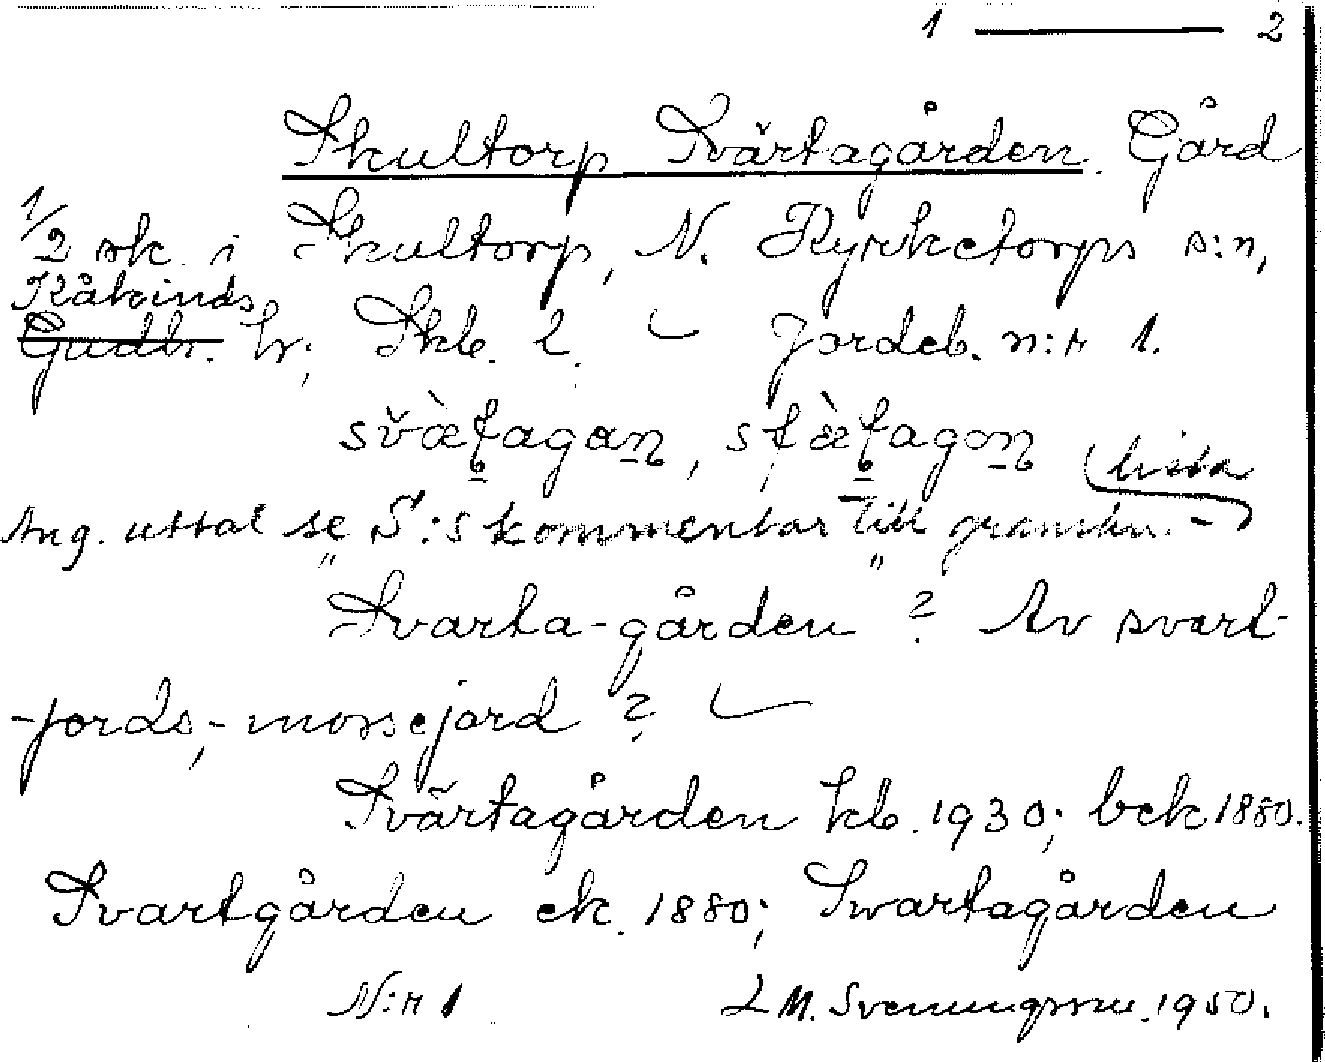 1 — 2
Skultorp Svärtagården. Gård
1/2 sk. i Skultorp, N. Kyrketorps s:n,
Kåkinds
Gudh. hr; Skb. l. Jordeb. n:r 1.
Ang. uttal se S:s kommentar till granskn.-
lista
Svarta-gården ? Av svart-
-jords,- mossejord ?
Svärtagården kb. 1930; bek 1880.
Svartgården ek. 1880; Swartagården
N:r 1 L M. Svenungsson. 1950.